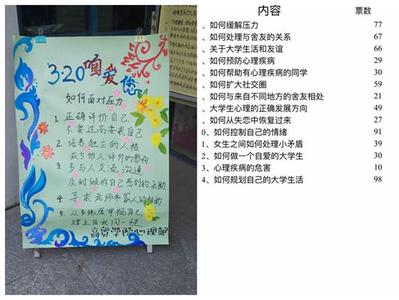 3·20 咱爱您
如何面对压力
1. 正确评价自己
不要过高要求自己
2. 培养独立的人格
减少他人评价的影响
3. 多与人交流沟通
及时做好自己
4. 寻求老师和家人的帮助
5. 从多角度审视自己
学院心理部
内容 票数
、如何缓解压力 77
、如何处理与舍友的关系 67
、关于大学生活和友谊 66
、如何预防心理疾病 29
、如何帮助有心理疾病的同学 30
、如何扩大社交圈 59
、如何与来自不同地方的舍友相处 21
、大学生心理的正确发展方向 49
、如何从失恋中恢复过来 27
0、如何控制自己的情绪 91
1、女生之间如何处理小矛盾 39
2、如何做一个自爱的大学生 30
3、心理疾病的危害 10
4、如何规划自己的大学生活 98